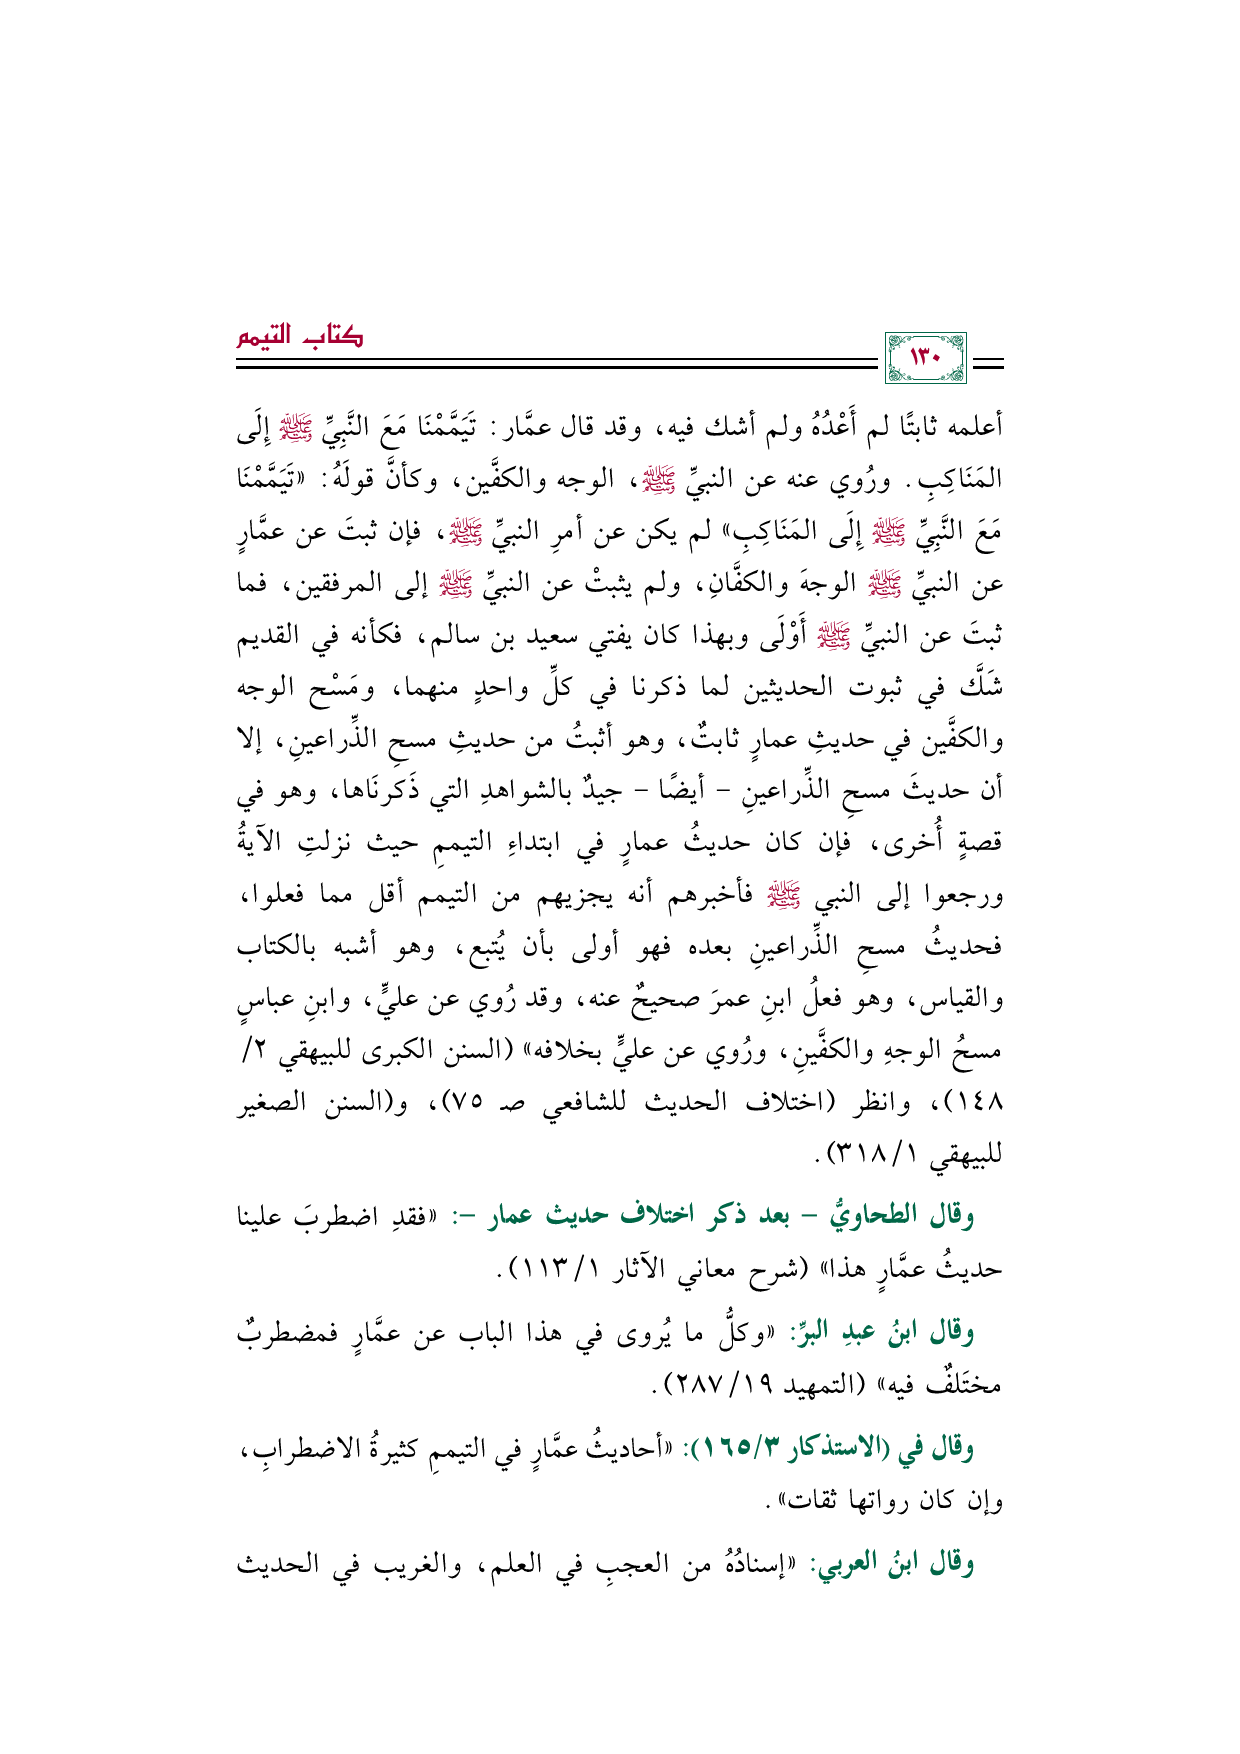 كتاب التيمم
١٣٠
أعلمه ثابتًا لم أَعْدُهُ ولم أشك فيه، وقد قال عمَّار: تَيَمَّمْنَا مَعَ النَّبِيِّ ﷺ إِلَى
المَنَاكِبِ. ورُوي عنه عن النبيِّ ﷺ، الوجه والكفَّين، وكأنَّ قولَهُ: «تَيَمَّمْنَا
مَعَ النَّبِيِّ ﷺ إِلَى المَنَاكِبِ» لم يكن عن أمرِ النبيِّ ﷺ، فإن ثبتَ عن عمَّارٍ
عن النبيِّ ﷺ الوجهَ والكفَّانِ، ولم يثبتْ عن النبيِّ ﷺ إلى المرفقين، فما
ثبتَ عن النبيِّ ﷺ أَوْلَى وبهذا كان يفتي سعيد بن سالم، فكأنه في القديم
شَكَّ في ثبوت الحديثين لما ذكرنا في كلِّ واحدٍ منهما، ومَسْح الوجه
والكفَّين في حديثِ عمارٍ ثابتٌ، وهو أثبتُ من حديثِ مسحِ الذِّراعينِ، إلا
أن حديثَ مسحِ الذِّراعينِ – أيضًا – جيدٌ بالشواهدِ التي ذَكرنَاها، وهو في
قصةٍ أُخرى، فإن كان حديثُ عمارٍ في ابتداءِ التيممِ حيث نزلتِ الآيةُ
ورجعوا إلى النبي ﷺ فأخبرهم أنه يجزيهم من التيمم أقل مما فعلوا،
فحديثُ مسحِ الذِّراعينِ بعده فهو أولى بأن يُتبع، وهو أشبه بالكتاب
والقياس، وهو فعلُ ابنِ عمرَ صحيحٌ عنه، وقد رُوي عن عليٍّ، وابنِ عباسٍ
مسحُ الوجهِ والكفَّينِ، ورُوي عن عليٍّ بخلافه» (السنن الكبرى للبيهقي ٢/
١٤٨)، وانظر (اختلاف الحديث للشافعي صـ ٧٥)، و(السنن الصغير
للبيهقي ١/ ٣١٨).
وقال الطحاويُّ – بعد ذكر اختلاف حديث عمار –: «فقدِ اضطربَ علينا
حديثُ عمَّارٍ هذا» (شرح معاني الآثار ١/ ١١٣).
وقال ابنُ عبدِ البرِّ: «وكلُّ ما يُروى في هذا الباب عن عمَّارٍ فمضطربٌ
مختَلفٌ فيه» (التمهيد ١٩/ ٢٨٧).
وقال في (الاستذكار ٣/ ١٦٥): «أحاديثُ عمَّارٍ في التيممِ كثيرةُ الاضطرابِ،
وإن كان رواتها ثقات».
وقال ابنُ العربي: «إسنادُهُ من العجبِ في العلم، والغريب في الحديث